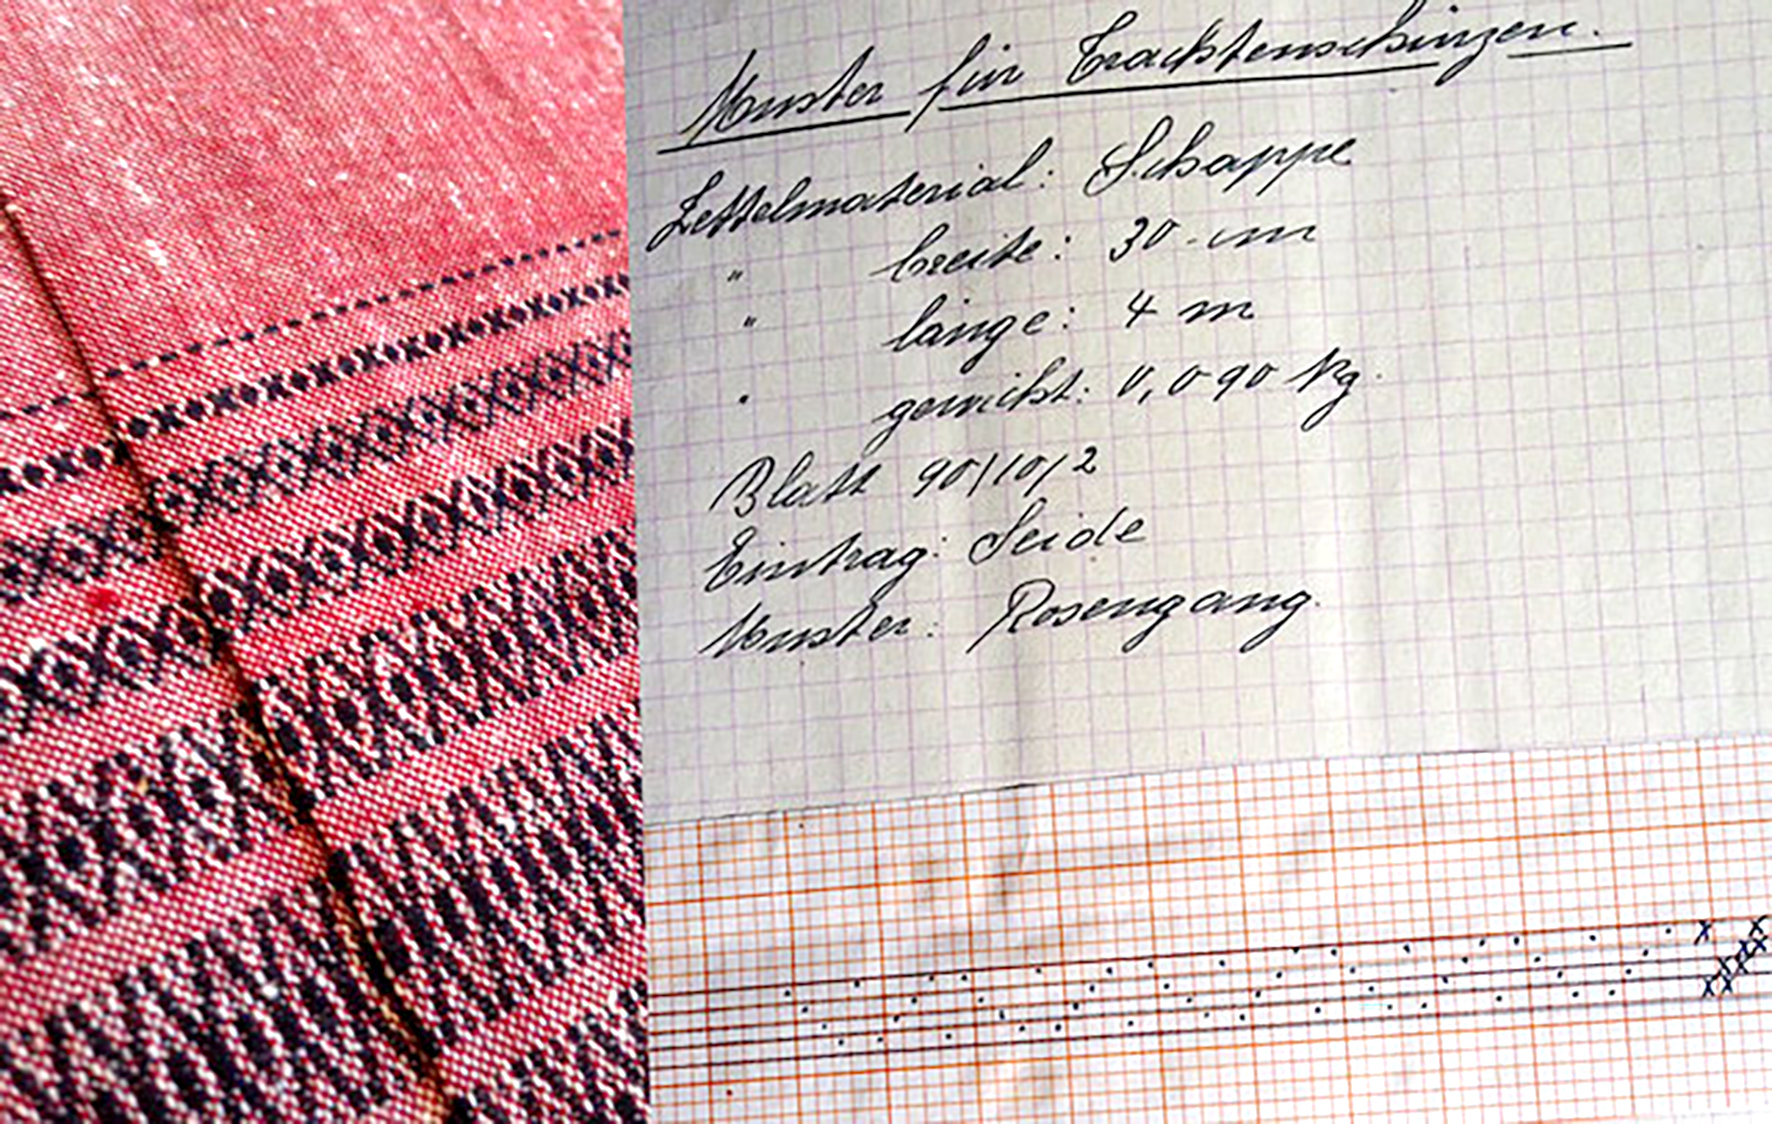 Muster für Trachtenschürzen.
Zettelmaterial: Schappe
" breite: 30 cm
" länge: 4 m
" gewicht: 0,090 kg.
Blatt 90/10/2
Eintrag: Seide
Muster: Rosengang.